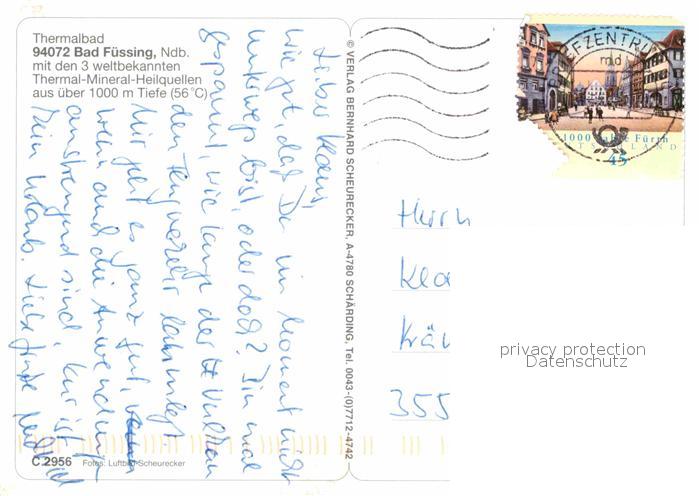 Thermalbad
94072 Bad Füssing, Ndb.
mit den 3 weltbekannten
Thermal-Mineral-Heilquellen
aus über 1000 m Tiefe (56°C)
Lieber Klaus,
wie gut, daß Du im Moment nicht
unterwegs bist, oder doch? Bin mal
gespannt, wie lange der Vulkan
den Flugverkehr lahmlegt
Mir geht es ganz gut,
wenn auch die Anwendungen
anstrengend sind, Kur ist
kein Urlaub. Liebe Grüße
C.2956 Fotos: Luftbild-Scheurecker
© VERLAG BERNHARD SCHEURECKER, A-4780 SCHÄRDING, Tel. 0043-(0)7712-4742
FZENTRU
1000 Jahre Fürth
45
Herrn
Kla
Krä
355
privacy protection
Datenschutz